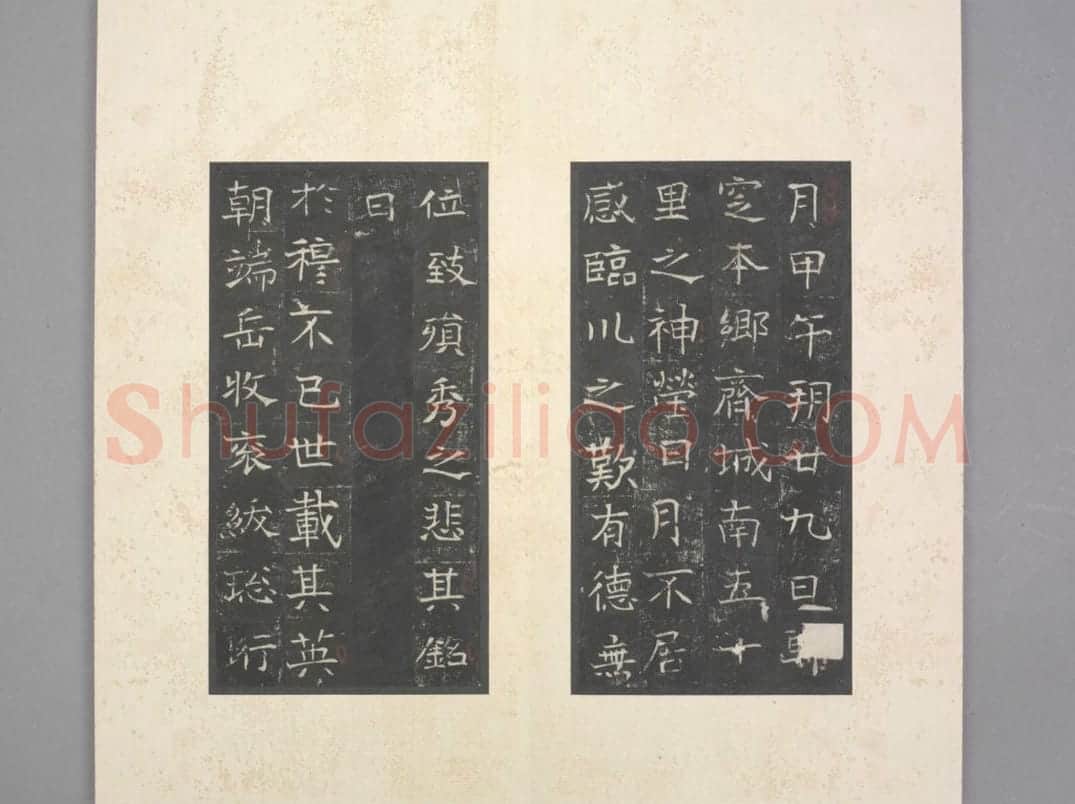 月甲午朔廿九日
窆本鄉齊城南五十
里之神塋日月不居
感臨川之歎有德無
位致殞秀之悲其銘
曰
於穆不已世載其英
朝端岳牧袞紱璁珩
Shufaziliao.COM